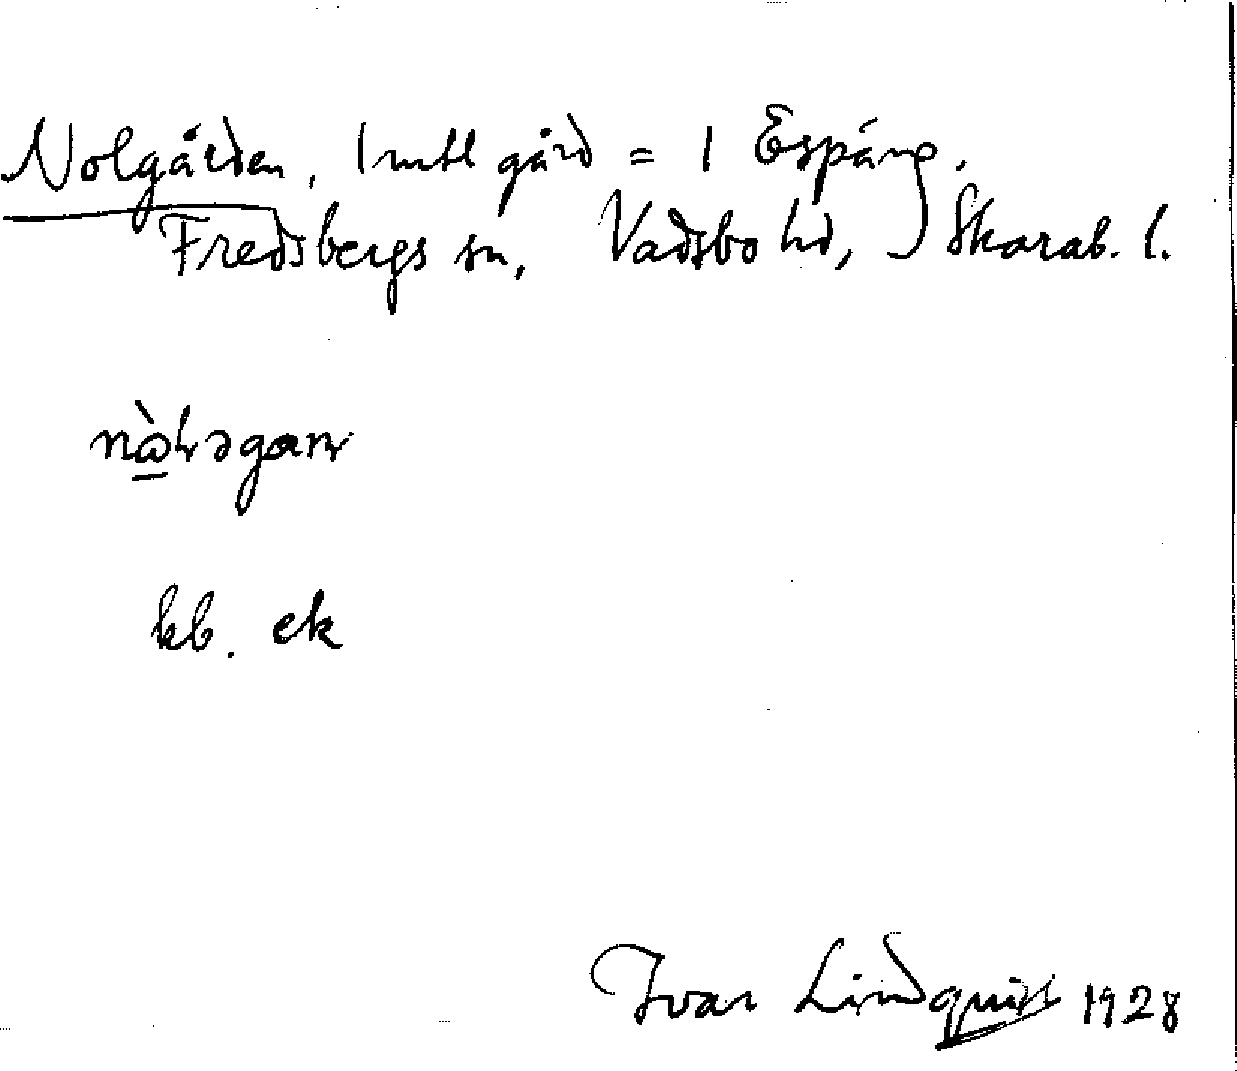 Nolgården, 1 mtl gård = 1 Espång.
Fredsbergs sn, Vadsbo hd, Skarab. l.
kb. ek
Ivar Lindquist 1928